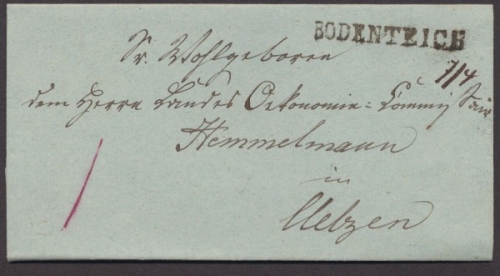 BODENTEICH
Sr. Wohlgeboren
7/4
dem Herrn Landes Oekonomie-Commissair
Hemmelmann
in
Uelzen